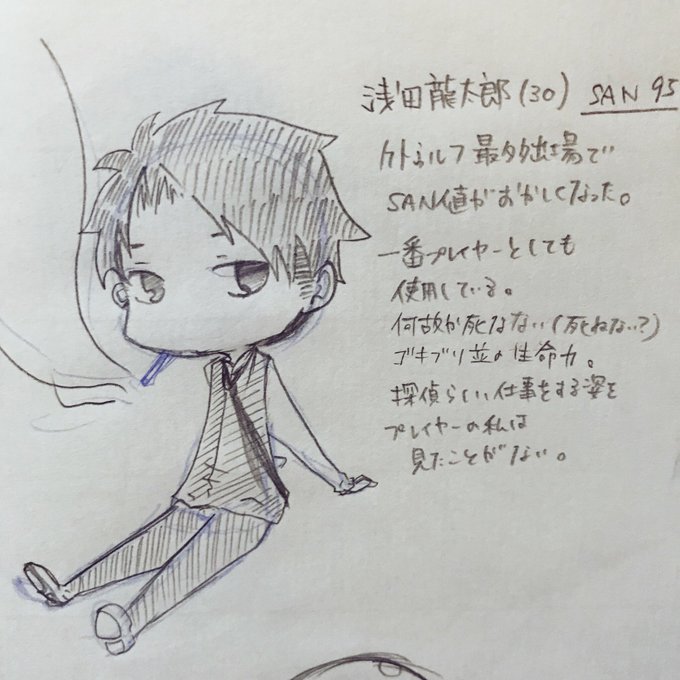 浅田龍太郎(30) SAN 95
クトゥルフ最多出場で
SAN値がおかしくなった。
一番プレイヤーとしても
使用している。
何故か死なない(死ねない?)
ゴキブリ並の生命力。
探偵らしい仕事をする姿を
プレイヤーの私は
見たことがない。